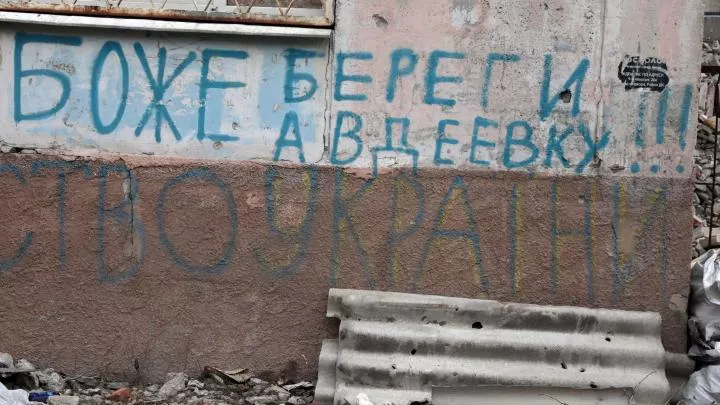 БОЖЕ БЕРЕГИ
АВДЕЕВКУ!!!
СТВО УКРАЇНИ